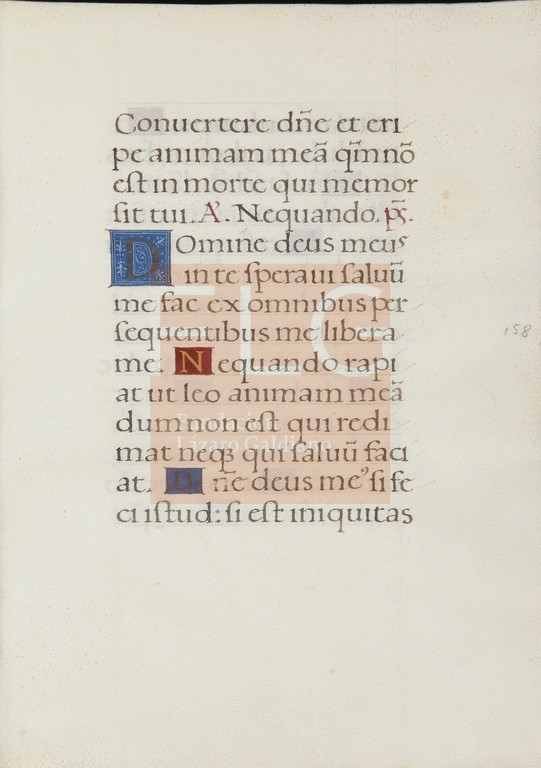 Conuertere dñe et eri
pe animam meã qm̃ nõ
eſt in morte qui memor
ſit tui. A'. Nequando. ps̃.
Domine deus meus
in te ſperaui ſaluũ
me fac ex omnibus per
ſequentibus me libera
me. Nequando rapi
at ut leo animam meã
dum non eſt qui redi
mat neqꝫ qui ſaluũ faci
at. Dñe deus meꝰ ſi fe
ci iſtud: ſi eſt iniquitas
158
FLG
Fundación
Lázaro Galdiano